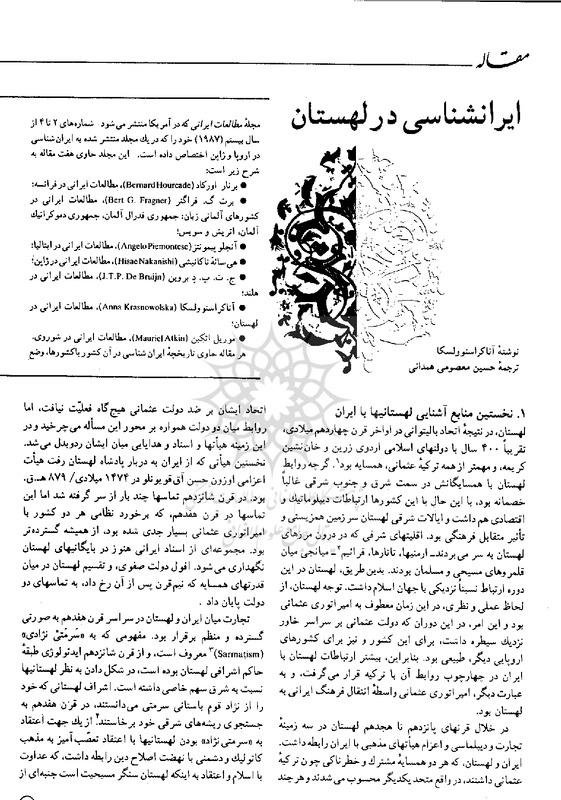 مقاله
ایرانشناسی در لهستان
نوشتهٔ آنا کراسنوولسکا
ترجمهٔ حسین معصومی همدانی
مجلهٔ مطالعات ایرانی که در آمریکا منتشر می‌شود شماره‌های ۲ تا ۴ از
سال بیستم (۱۹۸۷) خود را که در یك مجلد منتشر شده به ایران‌شناسی
در اروپا و ژاپن اختصاص داده است. این مجلد حاوی هفت مقاله به
شرح زیر است:
● برنار اورکاد (Bernard Hourcade)، مطالعات ایرانی در فرانسه؛
● برت گ. فراگنر (Bert G. Fragner)، مطالعات ایرانی در
کشورهای آلمانی زبان: جمهوری فدرال آلمان، جمهوری دموکراتیك
آلمان، اتریش و سویس؛
● آنجلو پیمونتز (Angelo Piemontese)، مطالعات ایرانی در ایتالیا؛
● هی‌سائهٔ ناکانیشی (Hisae Nakanishi)، مطالعات ایرانی در ژاپن؛
● ج. ت. پ. دِ بروین (J.T.P. De Bruijn)، مطالعات ایرانی در
هلند؛
● آنا کراسنوولسکا (Anna Krasnowolska)، مطالعات ایرانی در
لهستان؛
● موریل اتکین (Mauriel Atkin)، مطالعات ایرانی در شوروی.
هر مقاله حاوی تاریخچهٔ ایران شناسی در آن کشور یا کشورها، وضع
۱. نخستین منابع آشنایی لهستانیها با ایران
لهستان، در نتیجهٔ اتحاد با لیتوانی در اواخر قرن چهاردهم میلادی،
تقریباً ۴۰۰ سال با دولتهای اسلامی اردوی زرین و خان‌نشین
کریمه، و مهمتر از همه ترکیهٔ عثمانی، همسایه بود۱. گرچه روابط
لهستان با همسایگانش در سمت شرق و جنوب شرقی غالباً
خصمانه بود، با این حال با این کشورها ارتباطات دیپلوماتیك و
اقتصادی هم داشت و ایالات شرقی لهستان سرزمین همزیستی و
تأثیر متقابل فرهنگی بود. اقلیتهای شرقی که در درون مرزهای
لهستان به سر می‌بردند–ارمنیها، تاتارها، قرائیم۲–میانجی میان
قلمروهای مسیحی و مسلمان بودند. بدین طریق، لهستان در این
دوره ارتباط نسبتاً نزدیکی با جهان اسلام داشت. توجه لهستان، از
لحاظ عملی و نظری، در این زمان معطوف به امپراتوری عثمانی
بود و این امر، در این دوران که دولت عثمانی بر سراسر خاور
نزدیك سیطره داشت، برای این کشور و نیز برای کشورهای
اروپایی دیگر، طبیعی بود. بنابراین، بیشتر ارتباطات لهستان با
ایران در چهارچوب روابط آن با ترکیه قرار می‌گرفت، و به
عبارت دیگر، امپراتوری عثمانی واسطهٔ انتقال فرهنگ ایرانی به
لهستان بود.
در خلال قرنهای پانزدهم تا هجدهم لهستان در سه زمینهٔ
تجارت و دیپلماسی و اعزام هیأتهای مذهبی با ایران رابطه داشت.
ایران و لهستان، که هر دو همسایهٔ مشترك و خطرناکی چون ترکیهٔ
عثمانی داشتند، در واقع متحد یکدیگر محسوب می‌شدند و هر چند
اتحاد ایشان بر ضد دولت عثمانی هیچ‌گاه فعلیّت نیافت، اما
روابط میان دو دولت همواره بر محور این مسأله می‌چرخید و در
این زمینه هیأتها و اسناد و هدایایی میان ایشان ردوبدل می‌شد.
نخستین هیأتی که از ایران به دربار پادشاه لهستان رفت هیأت
اعزامی اوزون حسن آق‌قویونلو در ۱۴۷۴ میلادی/ ۸۷۹ هـ.ق.
بود. در قرن شانزدهم تماسها چند بار از سر گرفته شد اما این
تماسها در قرن هفدهم، که برخورد نظامی هر دو کشور با
امپراتوری عثمانی بسیار جدی شده بود، از همیشه گسترده‌تر
بود. مجموعه‌ای از اسناد ایرانی هنوز در بایگانیهای لهستان
نگهداری می‌شود. افول دولت صفوی، و تقسیم لهستان در میان
قدرتهای همسایه که نیم‌قرن پس از آن رخ داد، به تماسهای دو
دولت پایان داد.
تجارت میان ایران و لهستان در سراسر قرن هفدهم به صورتی
گسترده و منظم برقرار بود. مفهومی که به «سَرمَتی نژادی»
(Sarmatism)۳ معروف است، و از قرن شانزدهم ایدئولوژی طبقهٔ
حاکم اشرافی لهستان بوده است، در شکل دادن به نظر لهستانیها
نسبت به شرق سهم خاصی داشته است. اشراف لهستانی که خود
را از نژاد قوم باستانی سرمتی می‌دانستند، در قرن هفدهم به
جستجوی ریشه‌های شرقی خود برخاستند۴ از یك جهت اعتقاد
به «سرمتی‌نژاد» بودن لهستانیها با اعتقاد تعصّب آمیز به مذهب
کاتولیك و دشمنی با نهضت اصلاح دین رابطه داشت، که عداوت
با اسلام و اعتقاد به اینکه لهستان سنگر مسیحیت است جنبه‌ای از